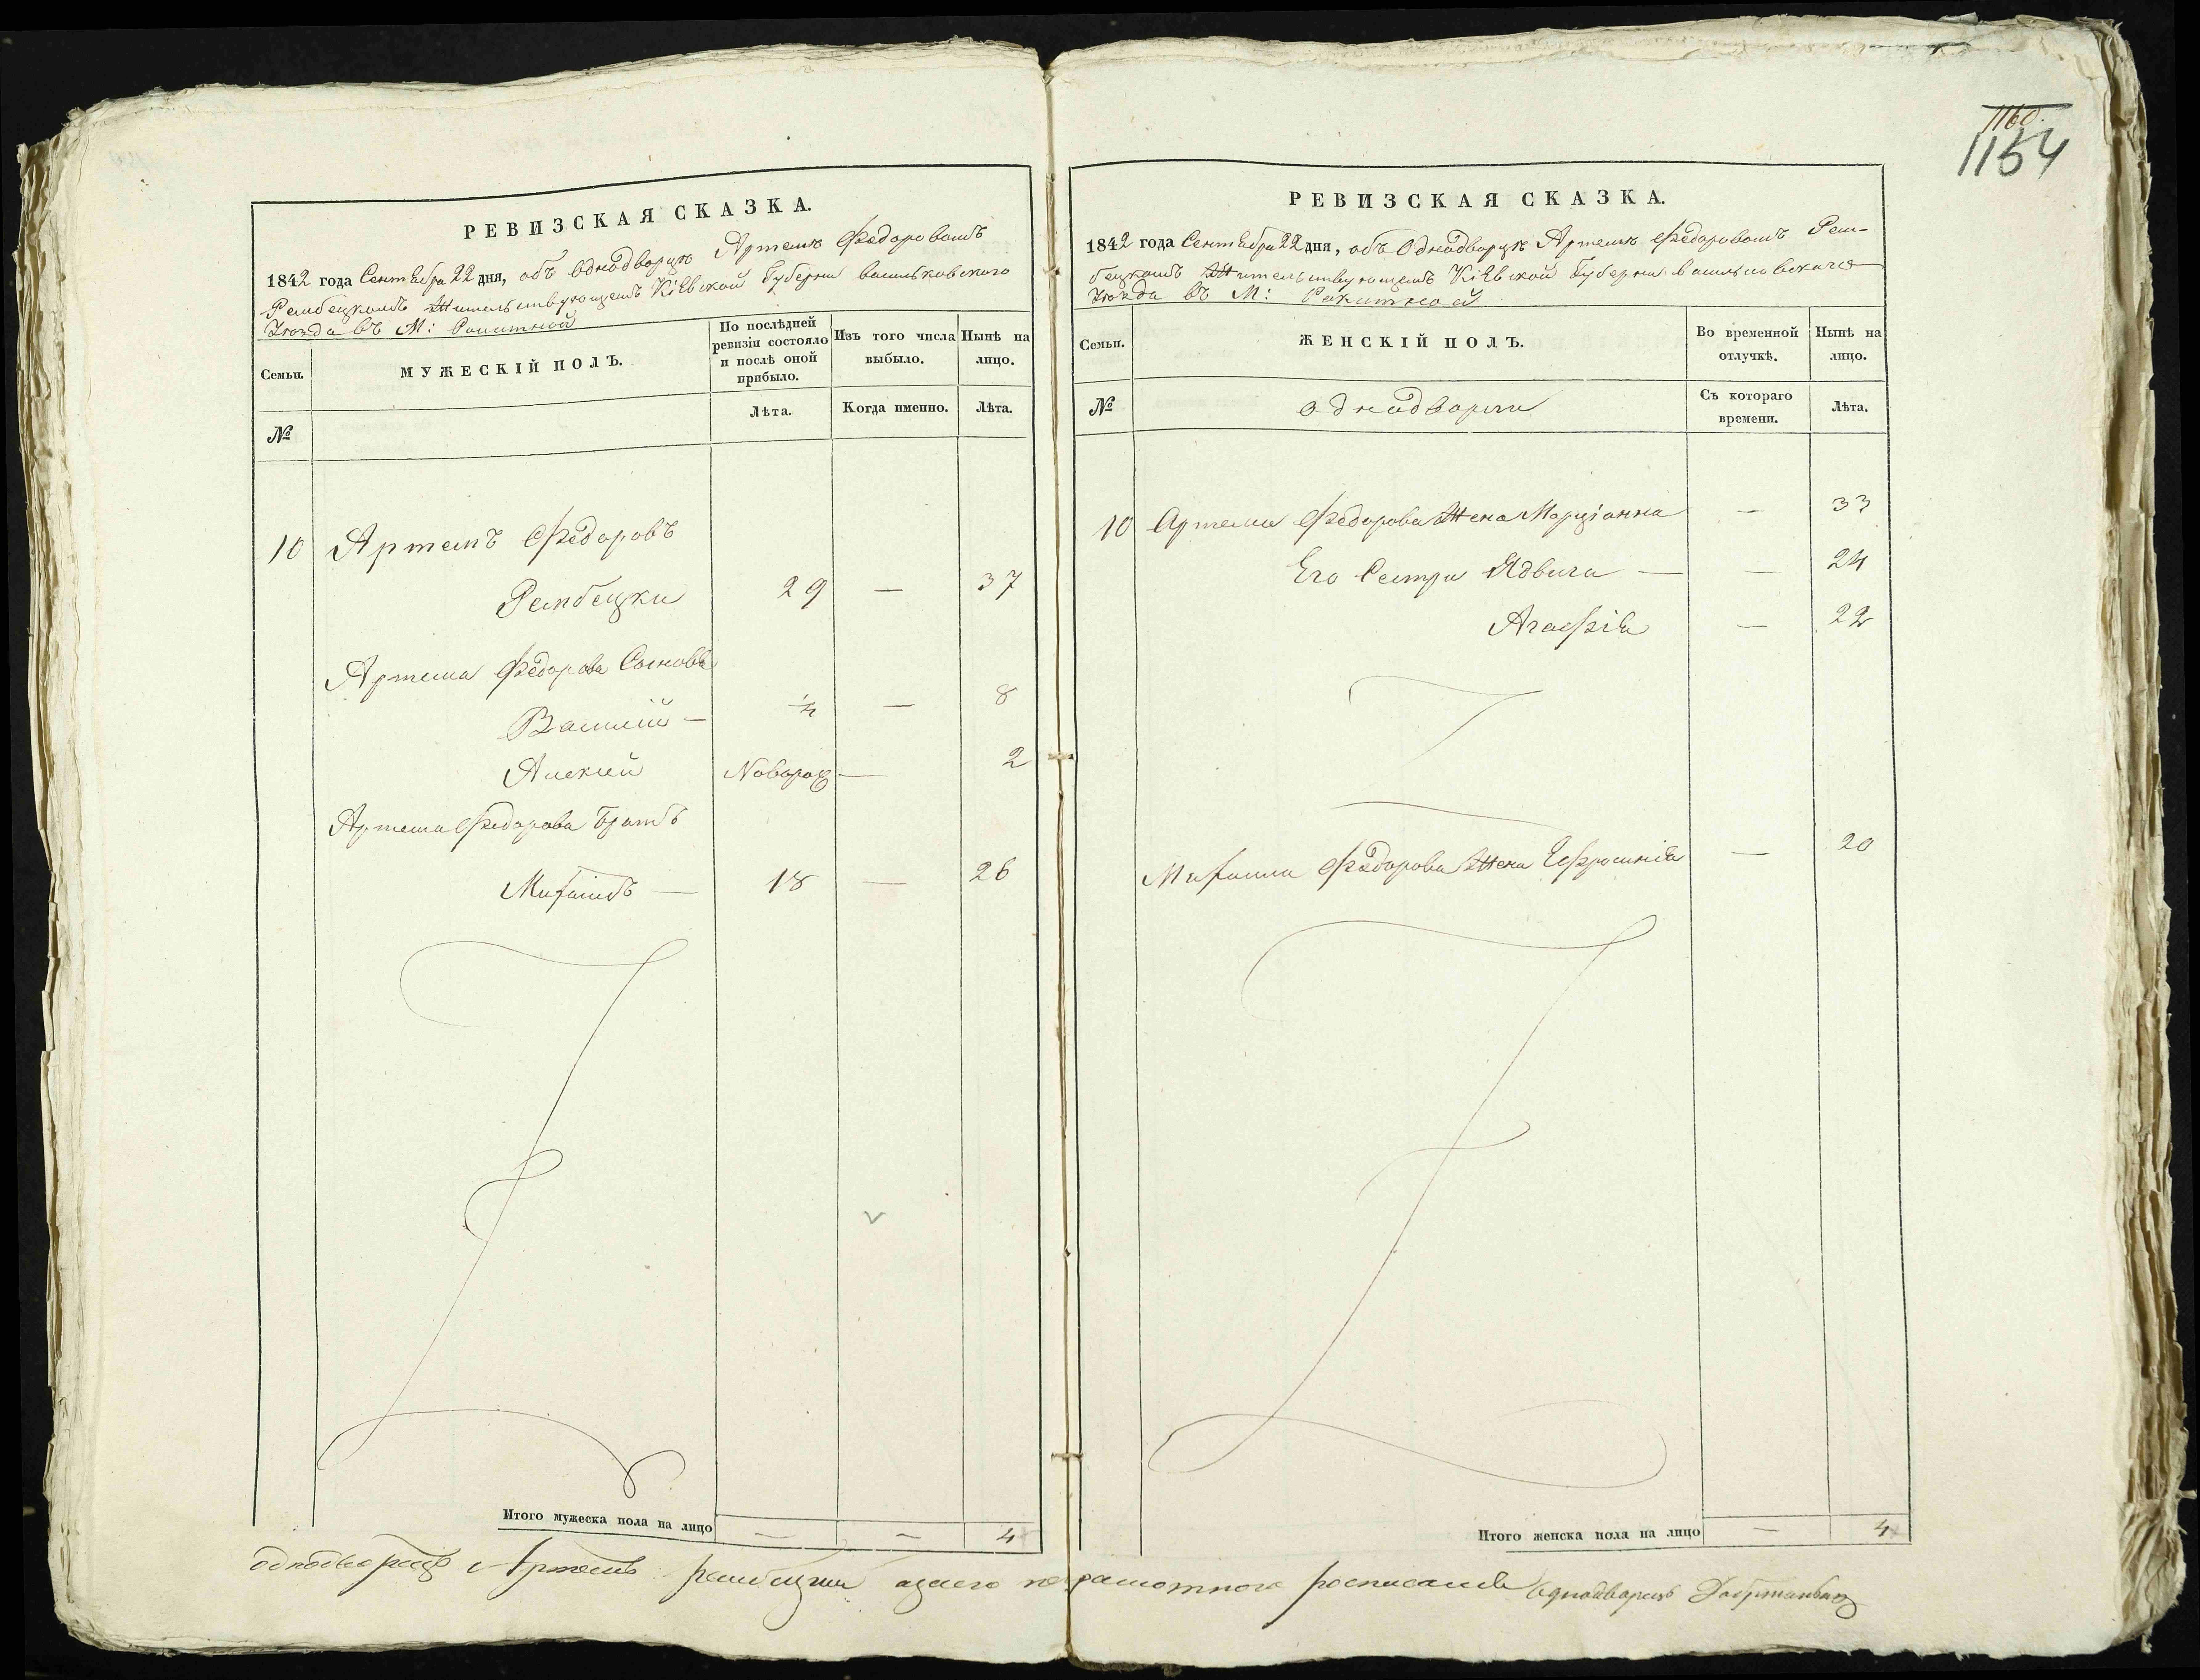 1160.
1154
РЕВИЗСКАЯ СКАЗКА.
1842 года Сентября 22 дня, объ Однодворцѣ Артемѣ Федоровомъ
Рембецкомъ Жительствующемъ Кіевской Губерни васильковского
Уѣзда въ М: Ракитной
Семьи.
МУЖЕСКІЙ ПОЛЪ.
По послѣдней
ревизіи состояло
и послѣ оной
прибыло.
Изъ того числа
выбыло.
Нынѣ на
лицо.
№
Лѣта.
Когда именно.
Лѣта.
10 Артемъ Федоровъ
Рембецки 29 — 37
Артема Федорова Сыновья
Василій — 4 — 8
Алексей Новорож — 2
Артема Федорова Братъ
Михаилъ — 18 — 26
Итого мужеска пола на лицо — — 4
РЕВИЗСКАЯ СКАЗКА.
1842 года Сентября 22 дня, объ Однодворцѣ Артемѣ Федоровомъ Рем-
бецкомъ Жительствующемъ Кіевской Губерни васильковскаго
Уѣзда въ М: Ракитной
Семьи.
ЖЕНСКІЙ ПОЛЪ.
Во временной
отлучкѣ.
Нынѣ на
лицо.
№
однодворци
Съ котораго
времени.
Лѣта.
10 Артема Федорова Жена Марціанна — 33
Его Сестры Ядвига — — 24
Агафія — 22
Михаила Федорова Жена Ефросинія — 20
Итого женска пола на лицо — 4
однодворецъ Артемъ Рембецки азаего неграмотного росписался Однодворецъ